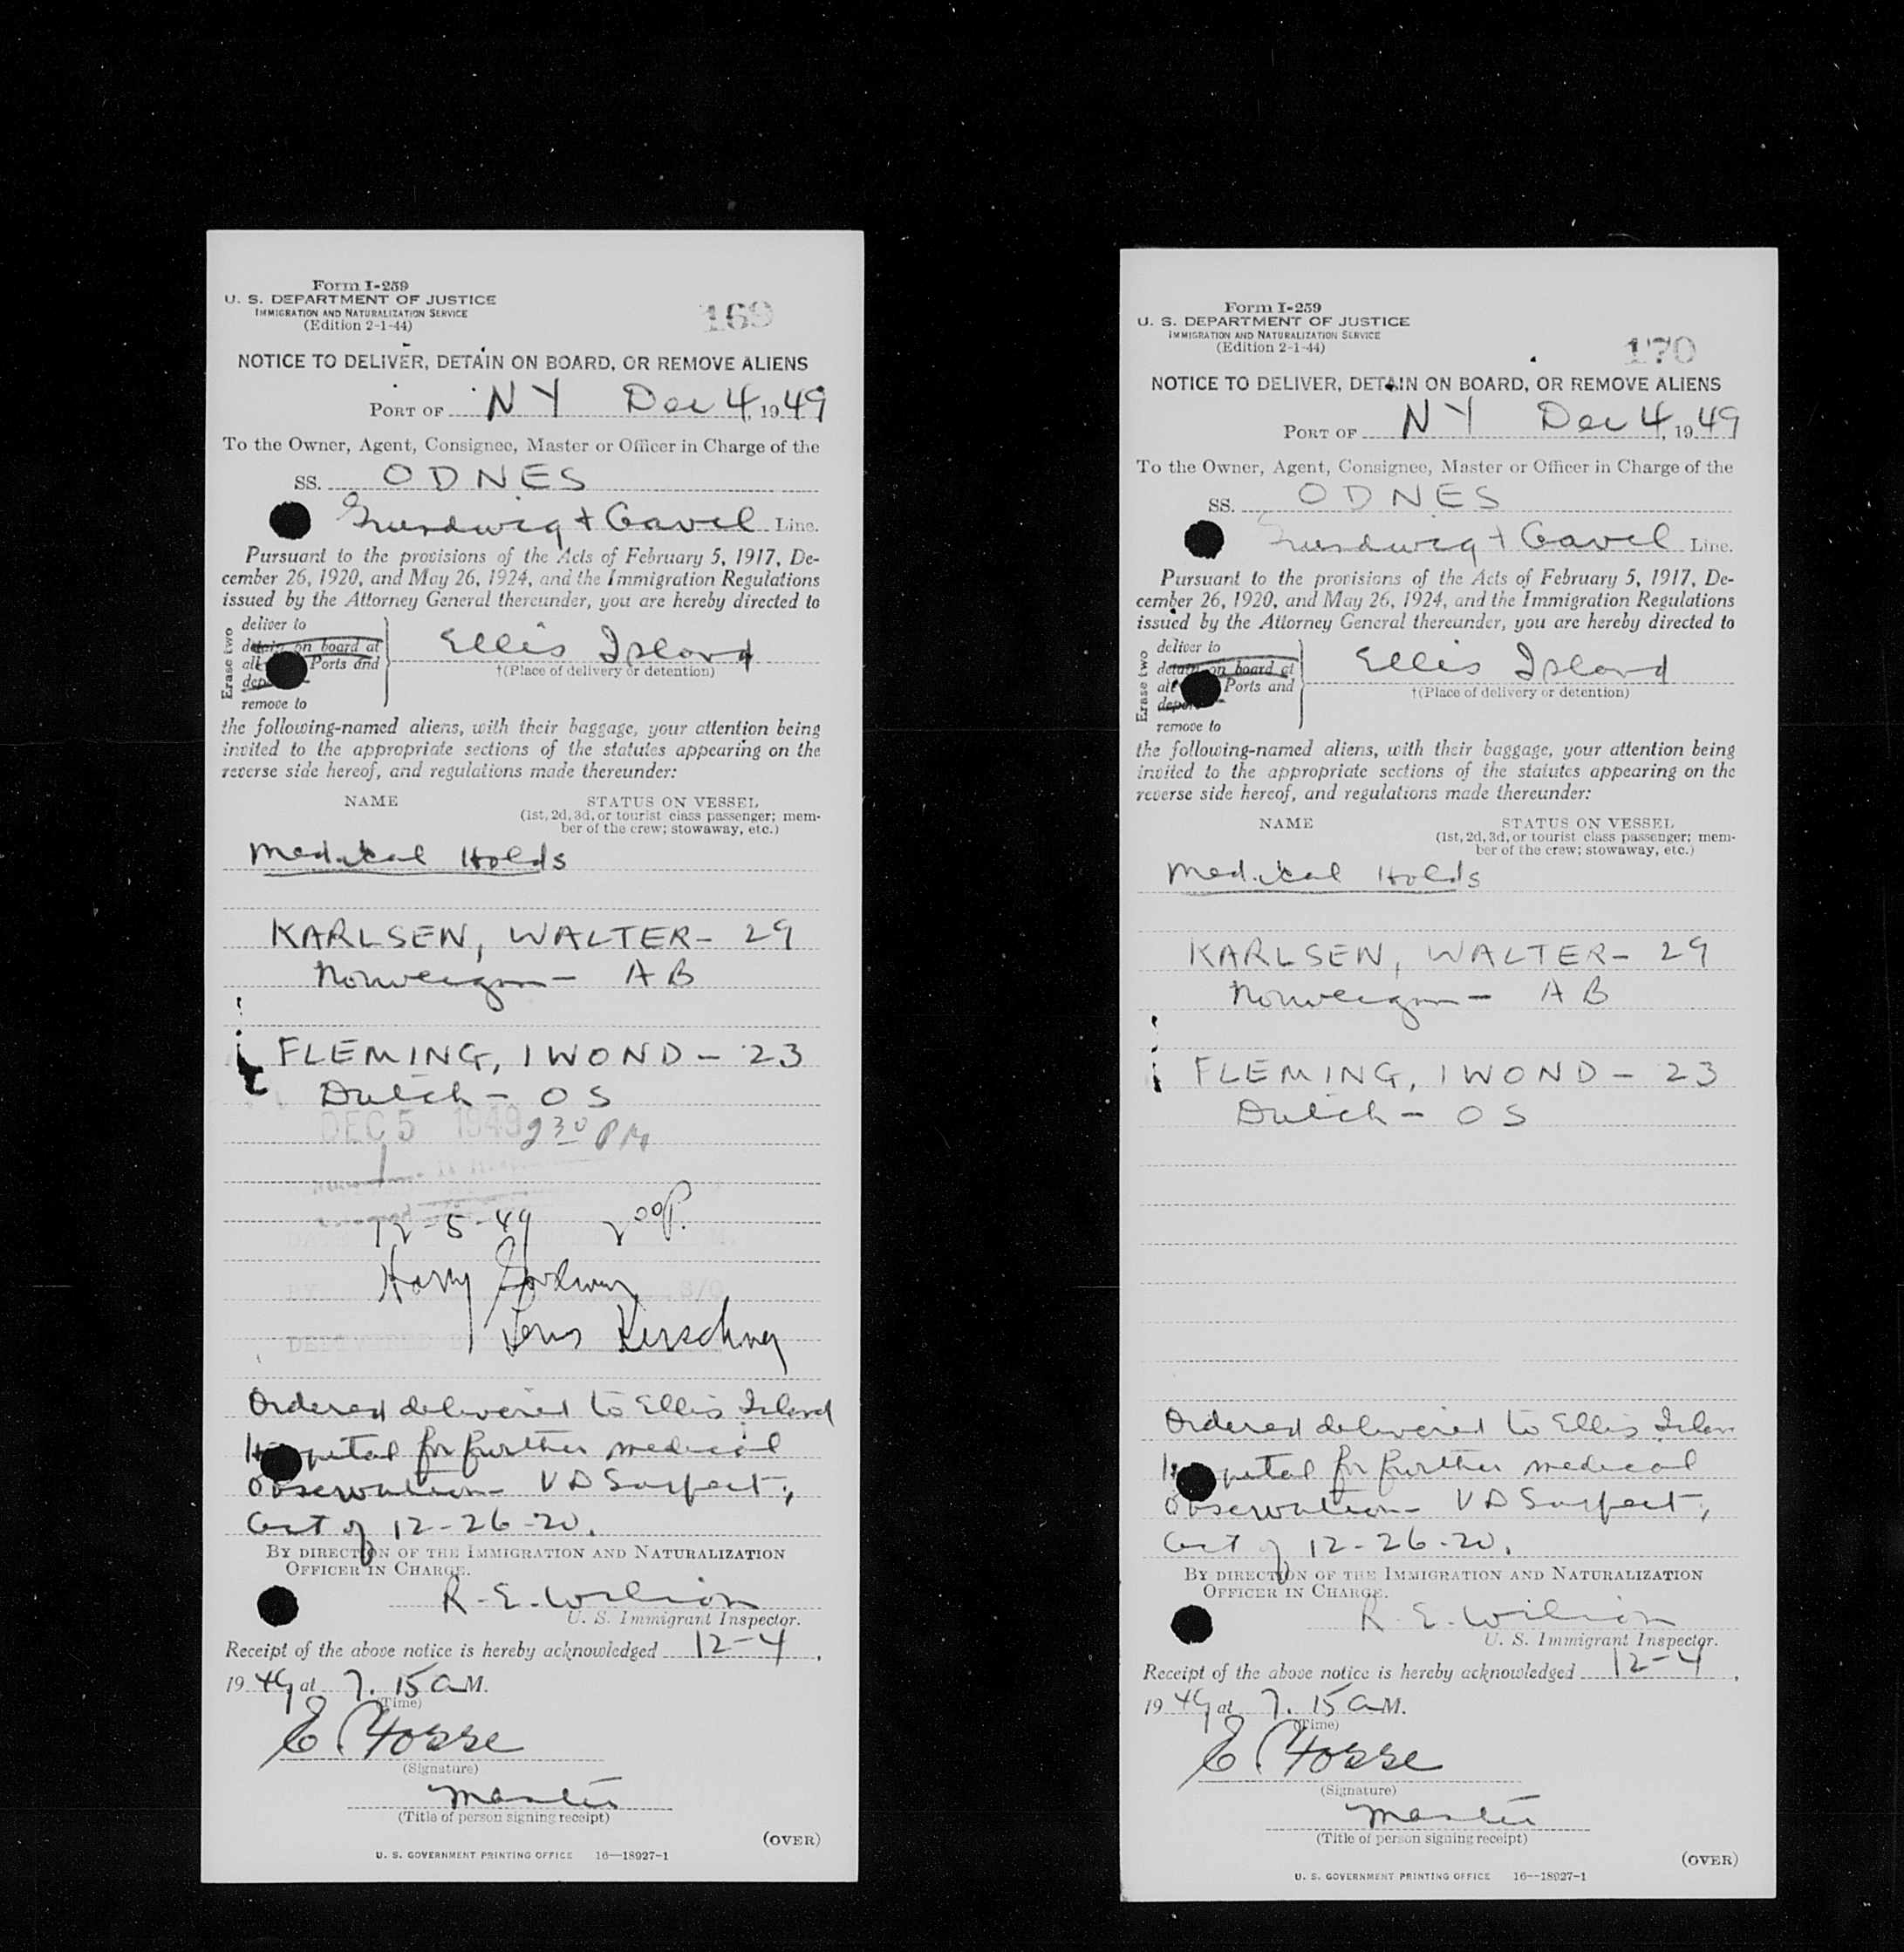 Form I-259
U. S. DEPARTMENT OF JUSTICE
IMMIGRATION AND NATURALIZATION SERVICE
(Edition 2-1-44)
169
NOTICE TO DELIVER, DETAIN ON BOARD, OR REMOVE ALIENS
PORT OF NY Dec 4, 1949
To the Owner, Agent, Consignee, Master or Officer in Charge of the
SS. ODNES
+ Cavel Line.
Pursuant to the provisions of the Acts of February 5, 1917, De-
cember 26, 1920, and May 26, 1924, and the Immigration Regulations
issued by the Attorney General thereunder, you are hereby directed to
Erase two
deliver to
detain on board at
all Ports and
remove to
Ellis Island
†(Place of delivery or detention)
the following-named aliens, with their baggage, your attention being
invited to the appropriate sections of the statutes appearing on the
reverse side hereof, and regulations made thereunder:
NAME STATUS ON VESSEL
(1st, 2d, 3d, or tourist class passenger; mem-
ber of the crew; stowaway, etc.)
Medical Holds
KARLSEN, WALTER - 29
Norwegian - AB
FLEMING, IWOND - 23
Dutch - OS
DEC 5 1949 2 30 PM
12-5-49 2 00 P.
Harry
Kirschner
Ordered delivered to Ellis Island
Hospital for further medical
observation - VD Suspect,
Act of 12-26-20.
BY DIRECTION OF THE IMMIGRATION AND NATURALIZATION
OFFICER IN CHARGE.
R. E. Wilson
U. S. Immigrant Inspector.
Receipt of the above notice is hereby acknowledged 12-4,
1949 at 7.15 a M.
(Time)
E. Fosse
(Signature)
Master
(Title of person signing receipt)
(OVER)
U. S. GOVERNMENT PRINTING OFFICE 16—18927-1
Form I-259
U. S. DEPARTMENT OF JUSTICE
IMMIGRATION AND NATURALIZATION SERVICE
(Edition 2-1-44)
170
NOTICE TO DELIVER, DETAIN ON BOARD, OR REMOVE ALIENS
PORT OF NY Dec 4, 1949
To the Owner, Agent, Consignee, Master or Officer in Charge of the
SS. ODNES
+ Cavel Line.
Pursuant to the provisions of the Acts of February 5, 1917, De-
cember 26, 1920, and May 26, 1924, and the Immigration Regulations
issued by the Attorney General thereunder, you are hereby directed to
Erase two
deliver to
detain on board at
all Ports and
remove to
Ellis Island
†(Place of delivery or detention)
the following-named aliens, with their baggage, your attention being
invited to the appropriate sections of the statutes appearing on the
reverse side hereof, and regulations made thereunder:
NAME STATUS ON VESSEL
(1st, 2d, 3d, or tourist class passenger; mem-
ber of the crew; stowaway, etc.)
Medical Holds
KARLSEN, WALTER - 29
Norwegian - AB
FLEMING, IWOND - 23
Dutch - OS
Ordered delivered to Ellis Islan
Hospital for further medical
observation - VD Suspect,
Act of 12-26-20.
BY DIRECTION OF THE IMMIGRATION AND NATURALIZATION
OFFICER IN CHARGE.
R. E. Wilson
U. S. Immigrant Inspector.
Receipt of the above notice is hereby acknowledged 12-4,
1949 at 7.15 a M.
(Time)
E. Fosse
(Signature)
Master
(Title of person signing receipt)
(OVER)
U. S. GOVERNMENT PRINTING OFFICE 16—18927-1